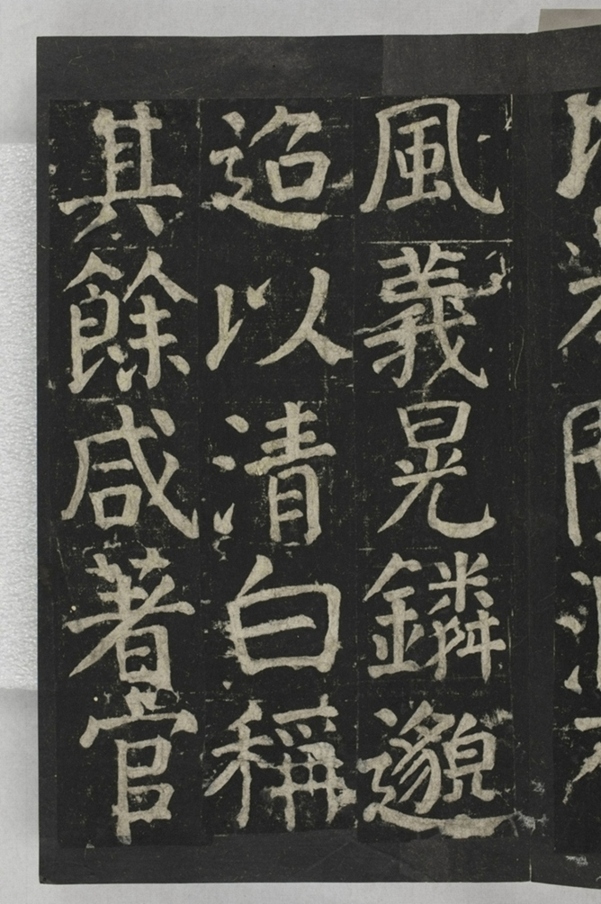 風義晃鏻邈
迢以清白稱
其餘咸著官